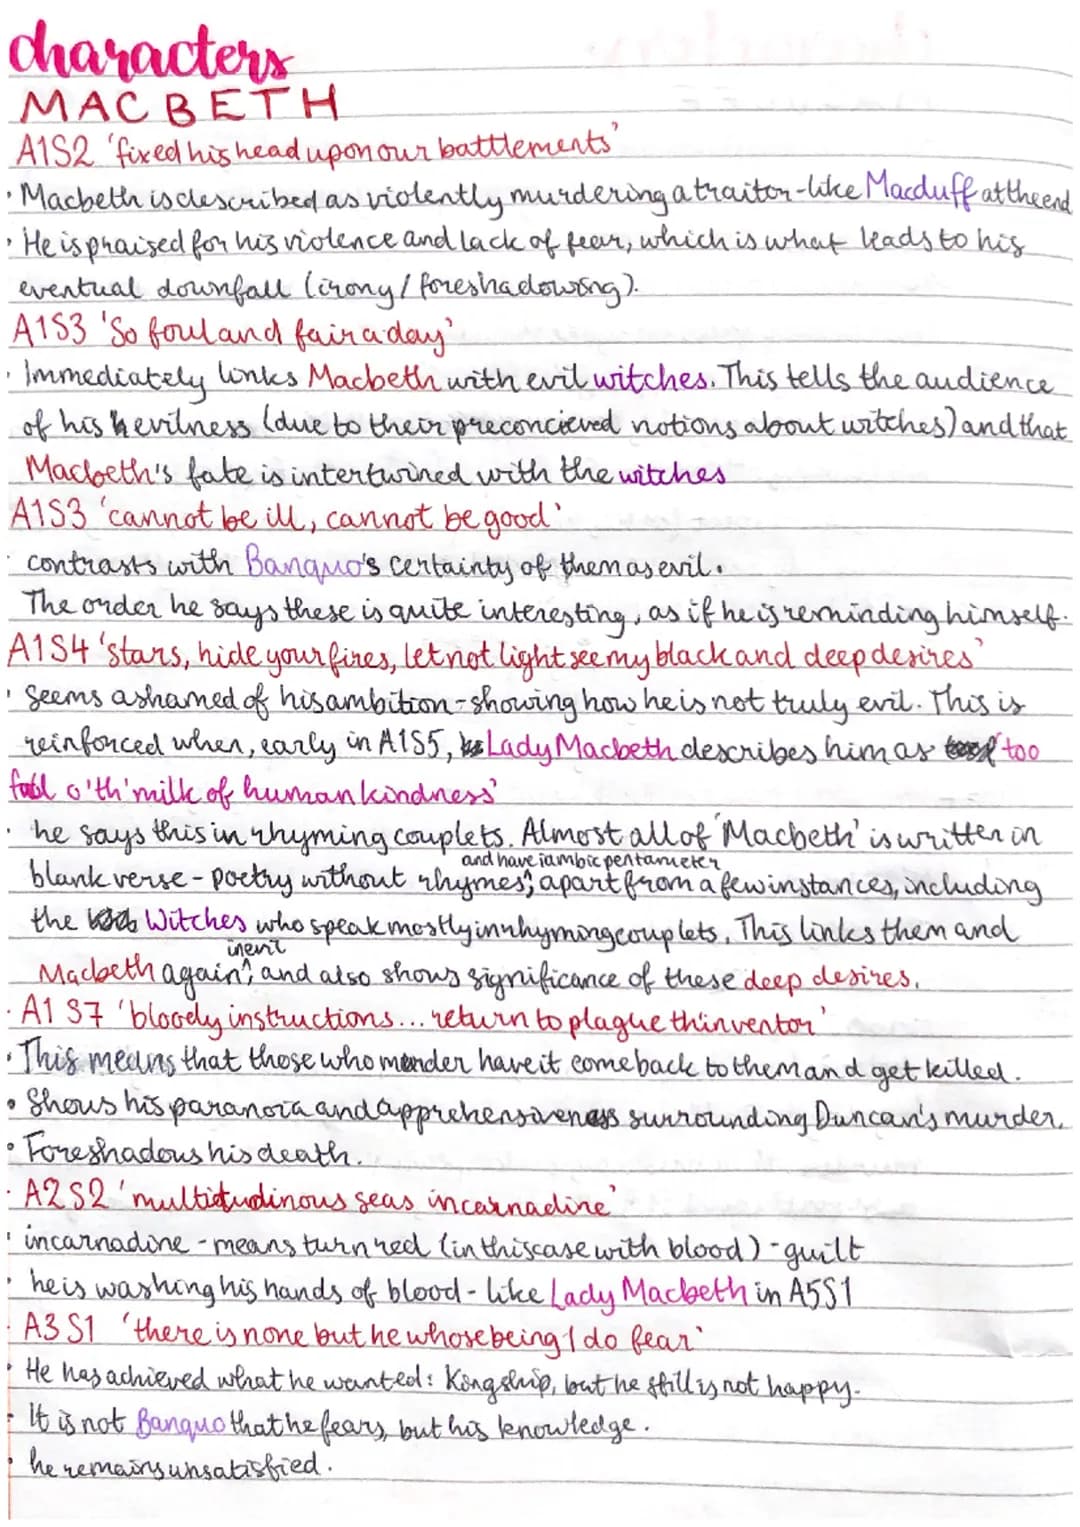 characters
MACBETH
A1S2 'fixed his head upon our battlements'
· Macbeth is described as violently murdering a traitor - like Macduff at the end
· He is praised for his violence and lack of fear, which is what leads to his
eventual downfall (irony/foreshadowing).
A1S3 'So foul and fair a day'
· Immediately links Macbeth with evil witches. This tells the audience
of his evilness (due to their preconcieved notions about witches) and that
Macbeth's fate is intertwined with the witches
A1S3 'cannot be ill, cannot be good'
· contrasts with Banquo's certainty of them as evil.
The order he says these is quite interesting, as if he is reminding himself.
A1S4 'stars, hide your fires, let not light see my black and deep desires'
· Seems ashamed of his ambition - showing how he is not truly evil. This is
reinforced when, early in A1S5, Lady Macbeth describes him as 'too
full o'th'milk of human kindness'
· he says this in rhyming couplets. Almost all of 'Macbeth' is written in
and have iambic pentameter
blank verse - poetry without rhymes; apart from a few instances, including
the Witches who speak mostly in rhyming couplets. This links them and
in evil
Macbeth again; and also shows significance of these deep desires.
· A1 S7 'bloody instructions... return to plague th'inventor'
· This means that those who murder have it come back to them and get killed.
· Shows his paranoia and apprehensiveness surrounding Duncan's murder.
· Foreshadows his death.
· A2 S2 'multitudinous seas incarnadine'
· incarnadine - means turn red (in this case with blood) - guilt
· he is washing his hands of blood - like Lady Macbeth in A5S1
· A3 S1 'there is none but he whose being I do fear'
· He has achieved what he wanted: Kingship, but he still is not happy.
· It is not Banquo that he fears, but his knowledge.
· he remains unsatisfied.